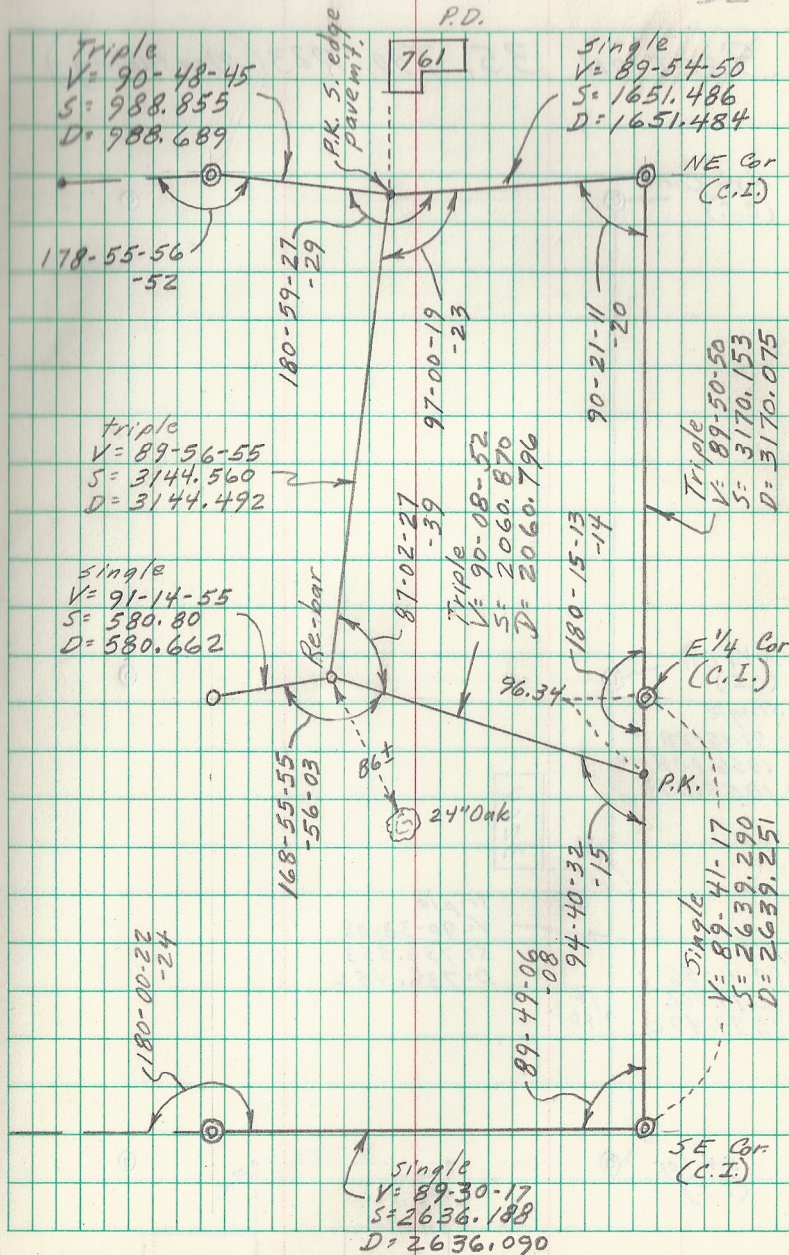 P.D.
761
P.K. S. edge
pavem't.
Triple
V= 90-48-45
S= 988.855
D= 988.689
Single
V= 89-54-50
S= 1651.486
D= 1651.484
NE Cor
(C.I.)
178-55-56
-52
180-59-27
-29
97-00-19
-23
90-21-11
-20
Triple
V= 89-50-50
S= 3170.153
D= 3170.075
triple
V= 89-56-55
S= 3144.560
D= 3144.492
87-02-27
-39
Triple
V= 90-08-52
S= 2060.870
D= 2060.796
180-15-13
-14
single
V= 91-14-55
S= 580.80
D= 580.662
Re-bar
E 1/4 Cor
(C.I.)
96.34
P.K.
86±
24" Oak
168-55-55
-56-03
94-40-32
-15
Single
V= 89-41-17
S= 2639.290
D= 2639.251
180-00-22
-24
89-49-06
-08
SE Cor.
(C.I.)
single
V= 89-30-17
S= 2636.188
D= 2636.090